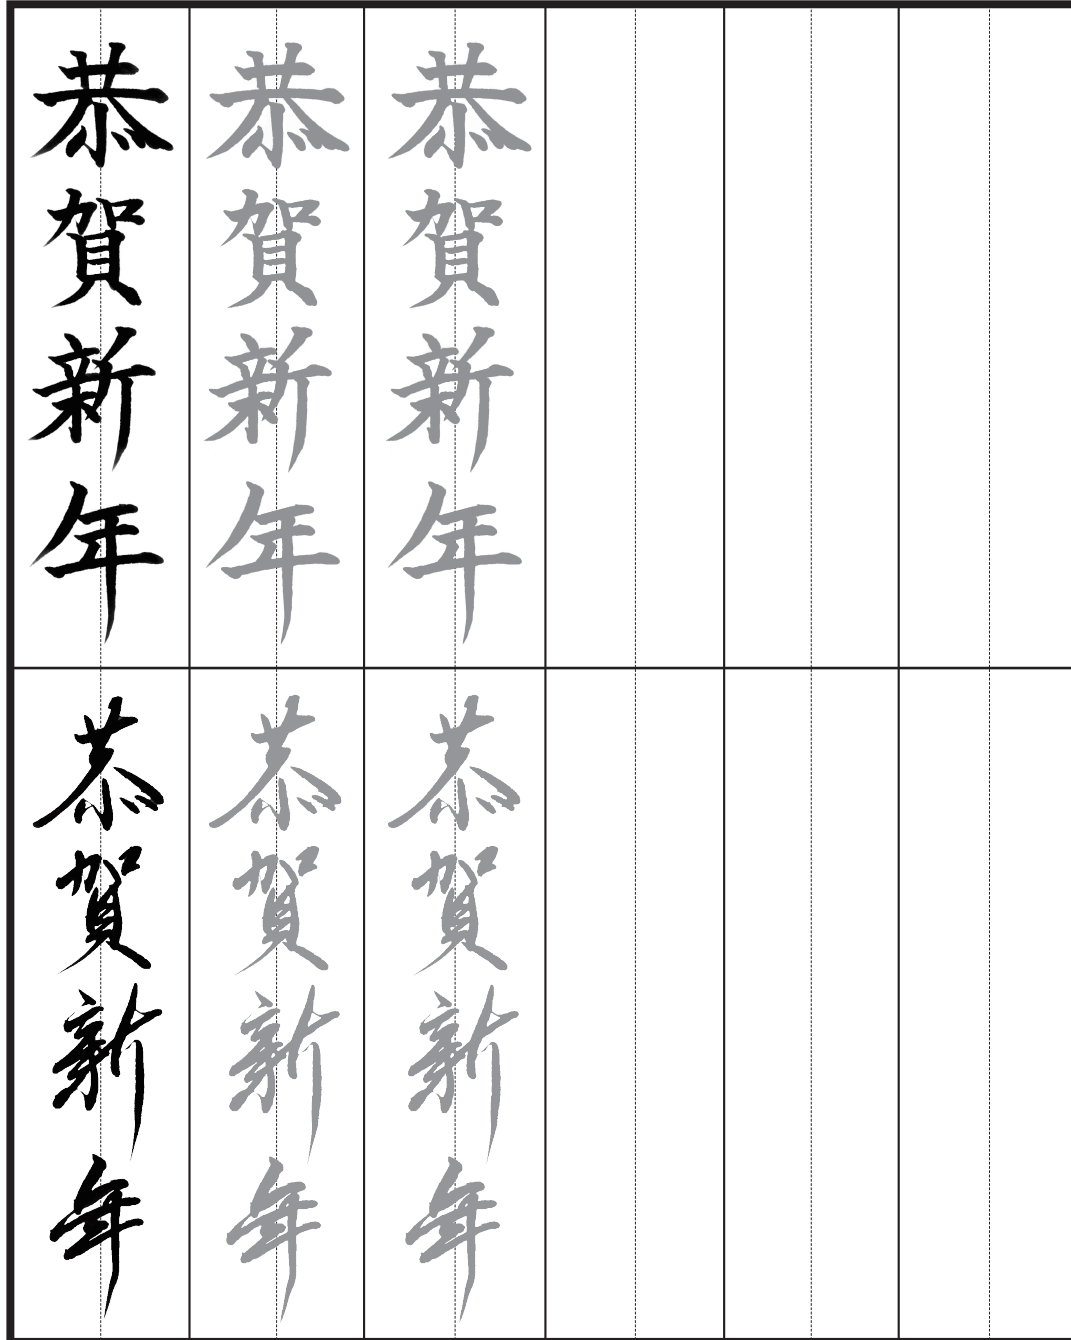 恭賀新年
恭賀新年
恭賀新年
恭賀新年
恭賀新年
恭賀新年